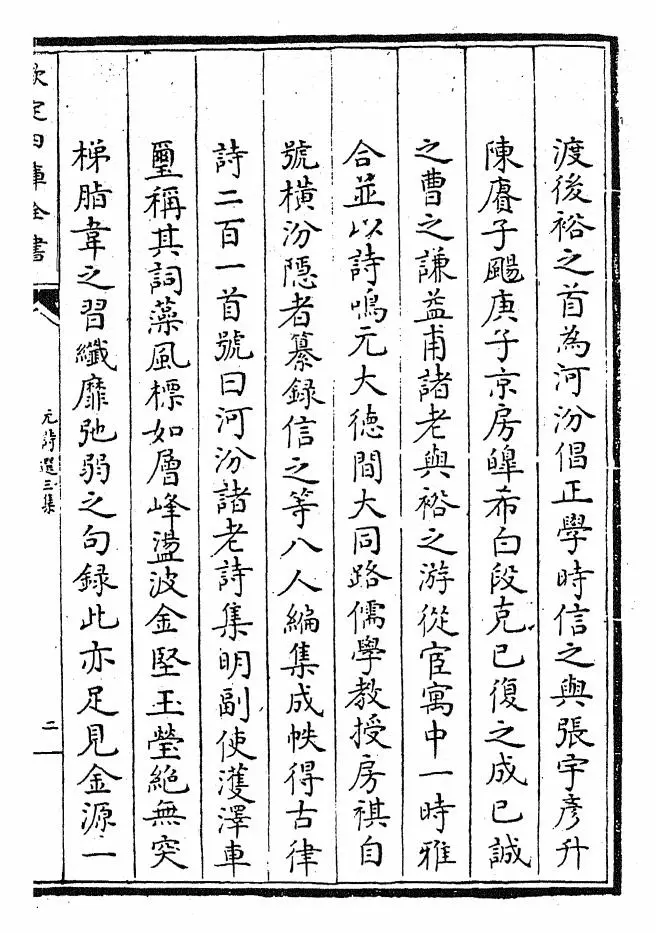 渡後裕之首為河汾倡正學時信之與張宇彦升
陳賡子颺庚子京房皥希白段克已復之成已誠
之曹之謙益甫諸老與裕之游從宦寓中一時雅
合並以詩鳴元大徳間大同路儒學教授房祺自
號横汾隠者纂録信之等八人編集成帙得古律
詩二百一首號曰河汾諸老詩集明副使濩澤車
璽稱其詞藻風標如層峰盪波金堅玉瑩絶無突
梯脂韋之習纖靡弛弱之句録此亦足見金源一
欽定四庫全書
元詩選三集
二